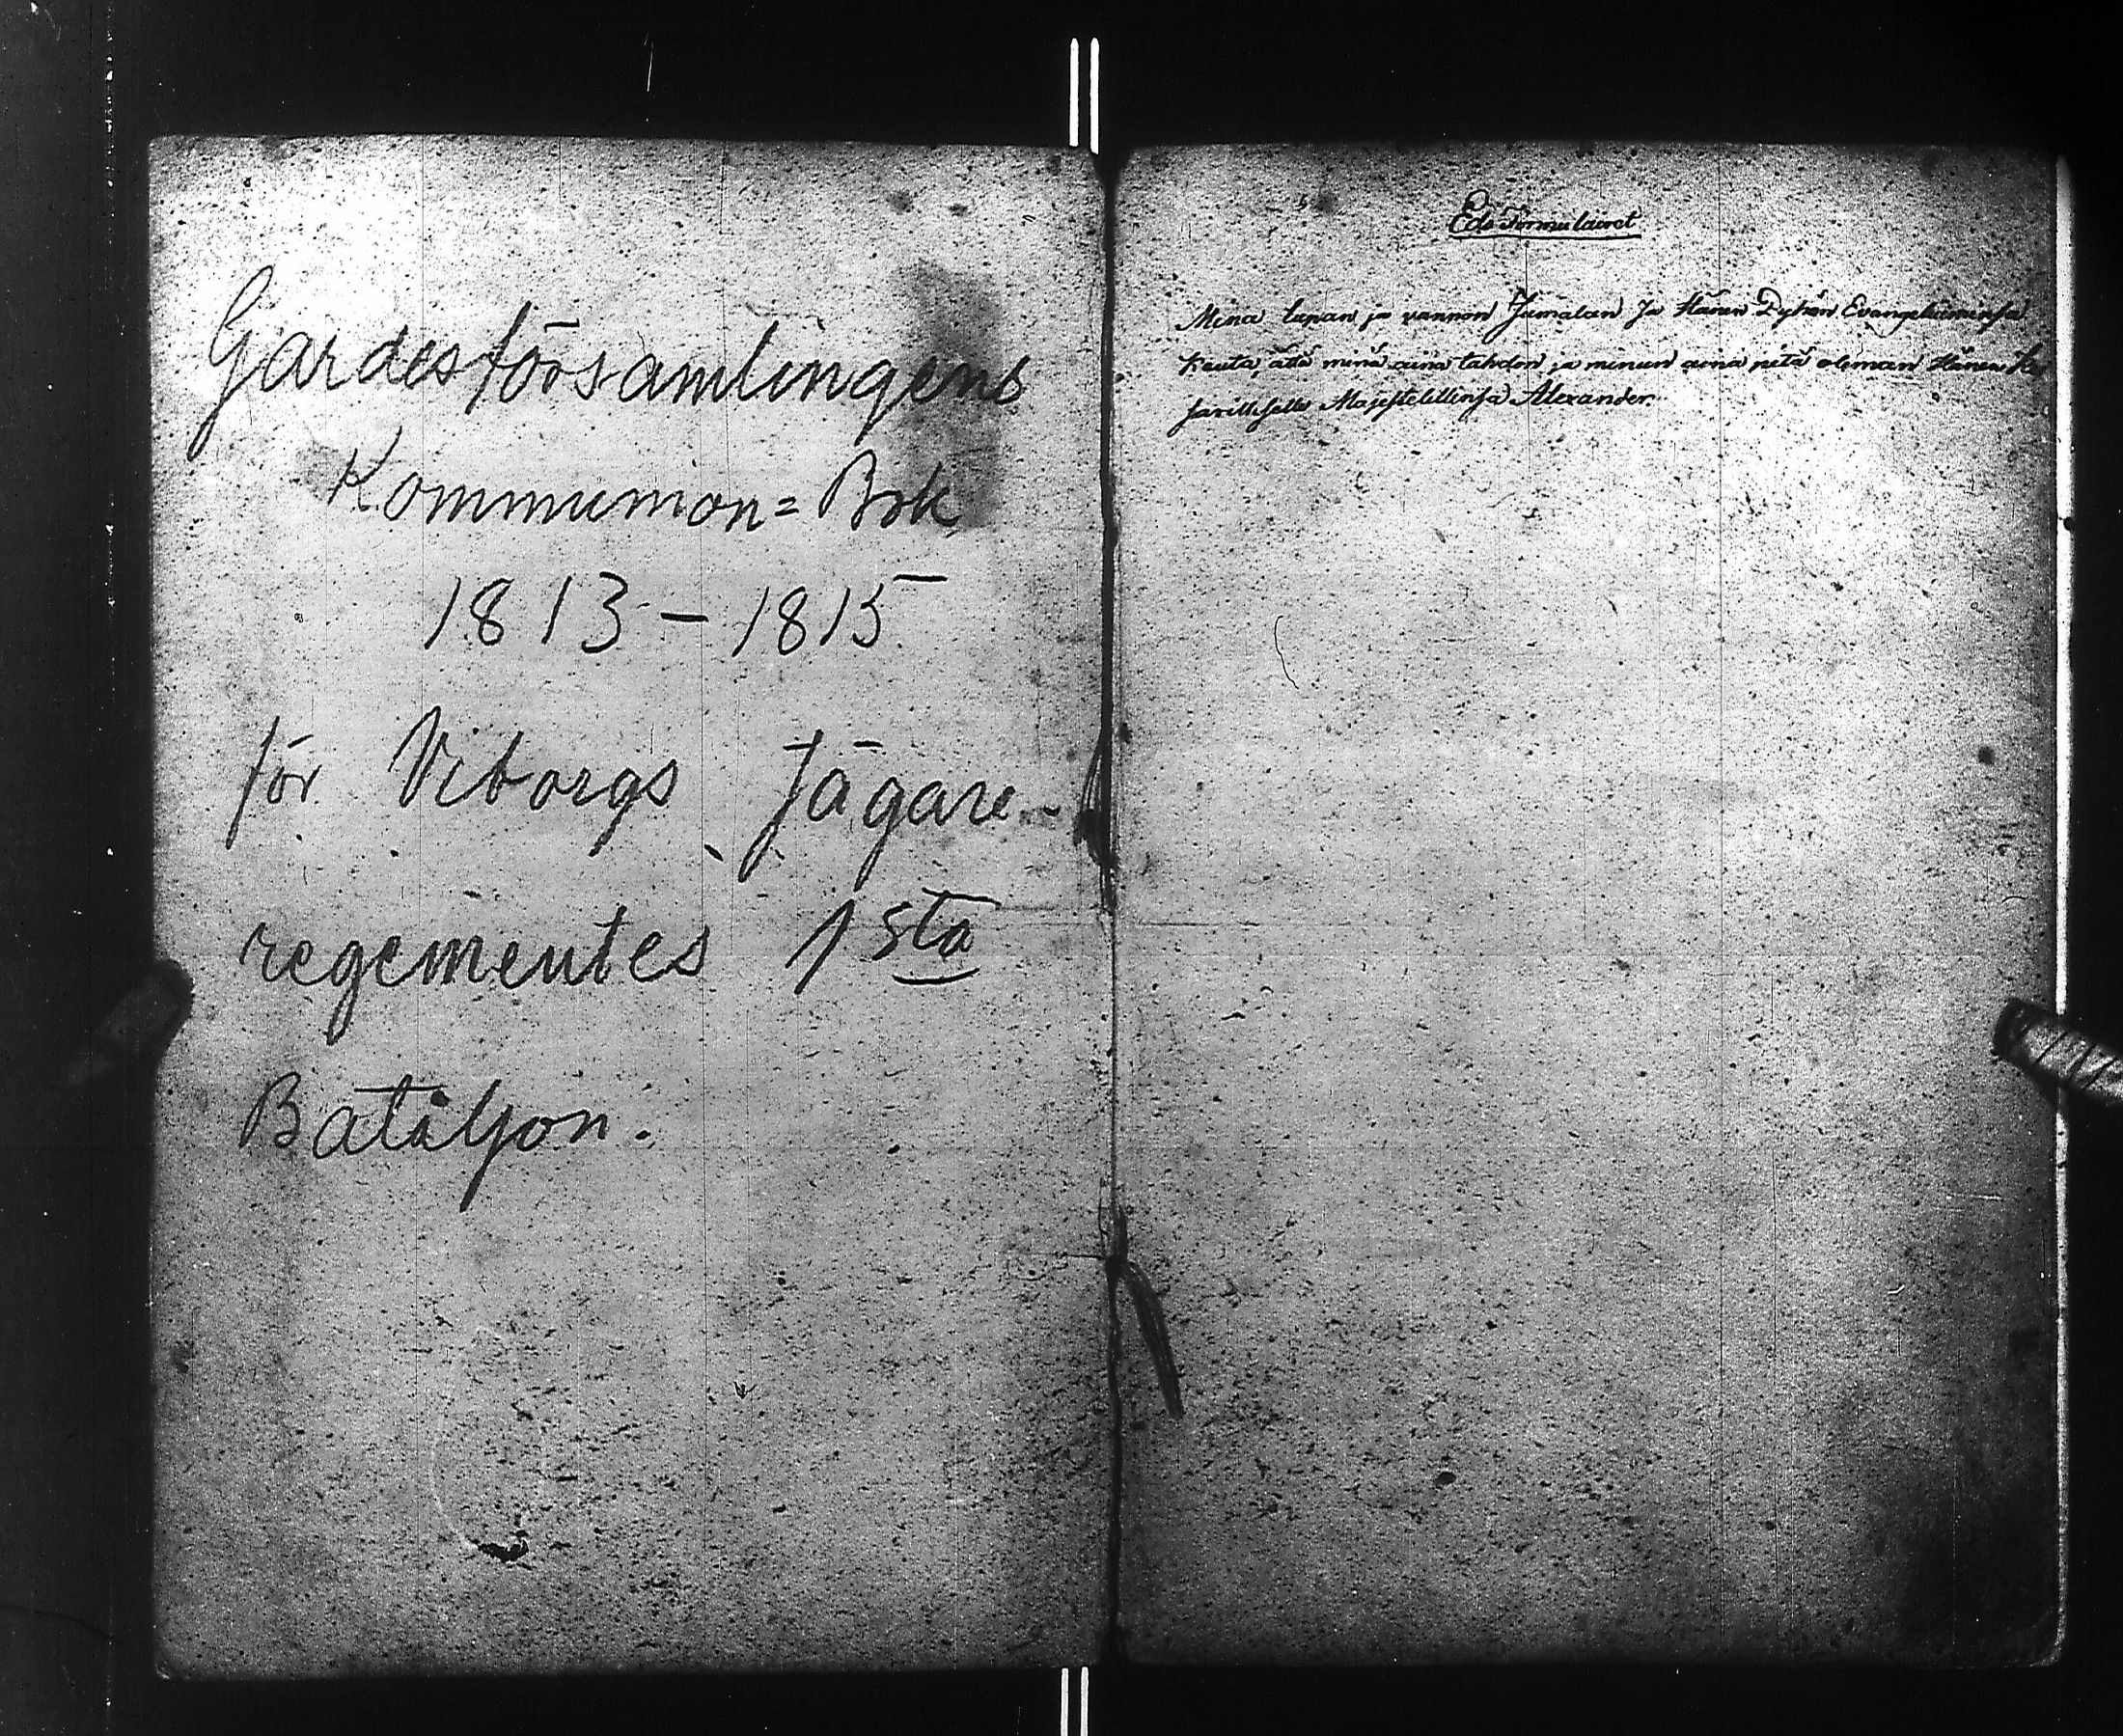 Gardesförsamlingens
Kommunion = Bok
1813 – 1815
för Viborgs Jägare-
regementes 1sta
Bataljon.
Eds Formulairet
Mina lupan ja vannon Jumalan Ja Hänen Pyhän Evangeliuminsa
kauta, ättä minä aina tahdon ja minun aina pitä oleman Hänen Kei
sarilliselle Majestetillinsa Alexander.